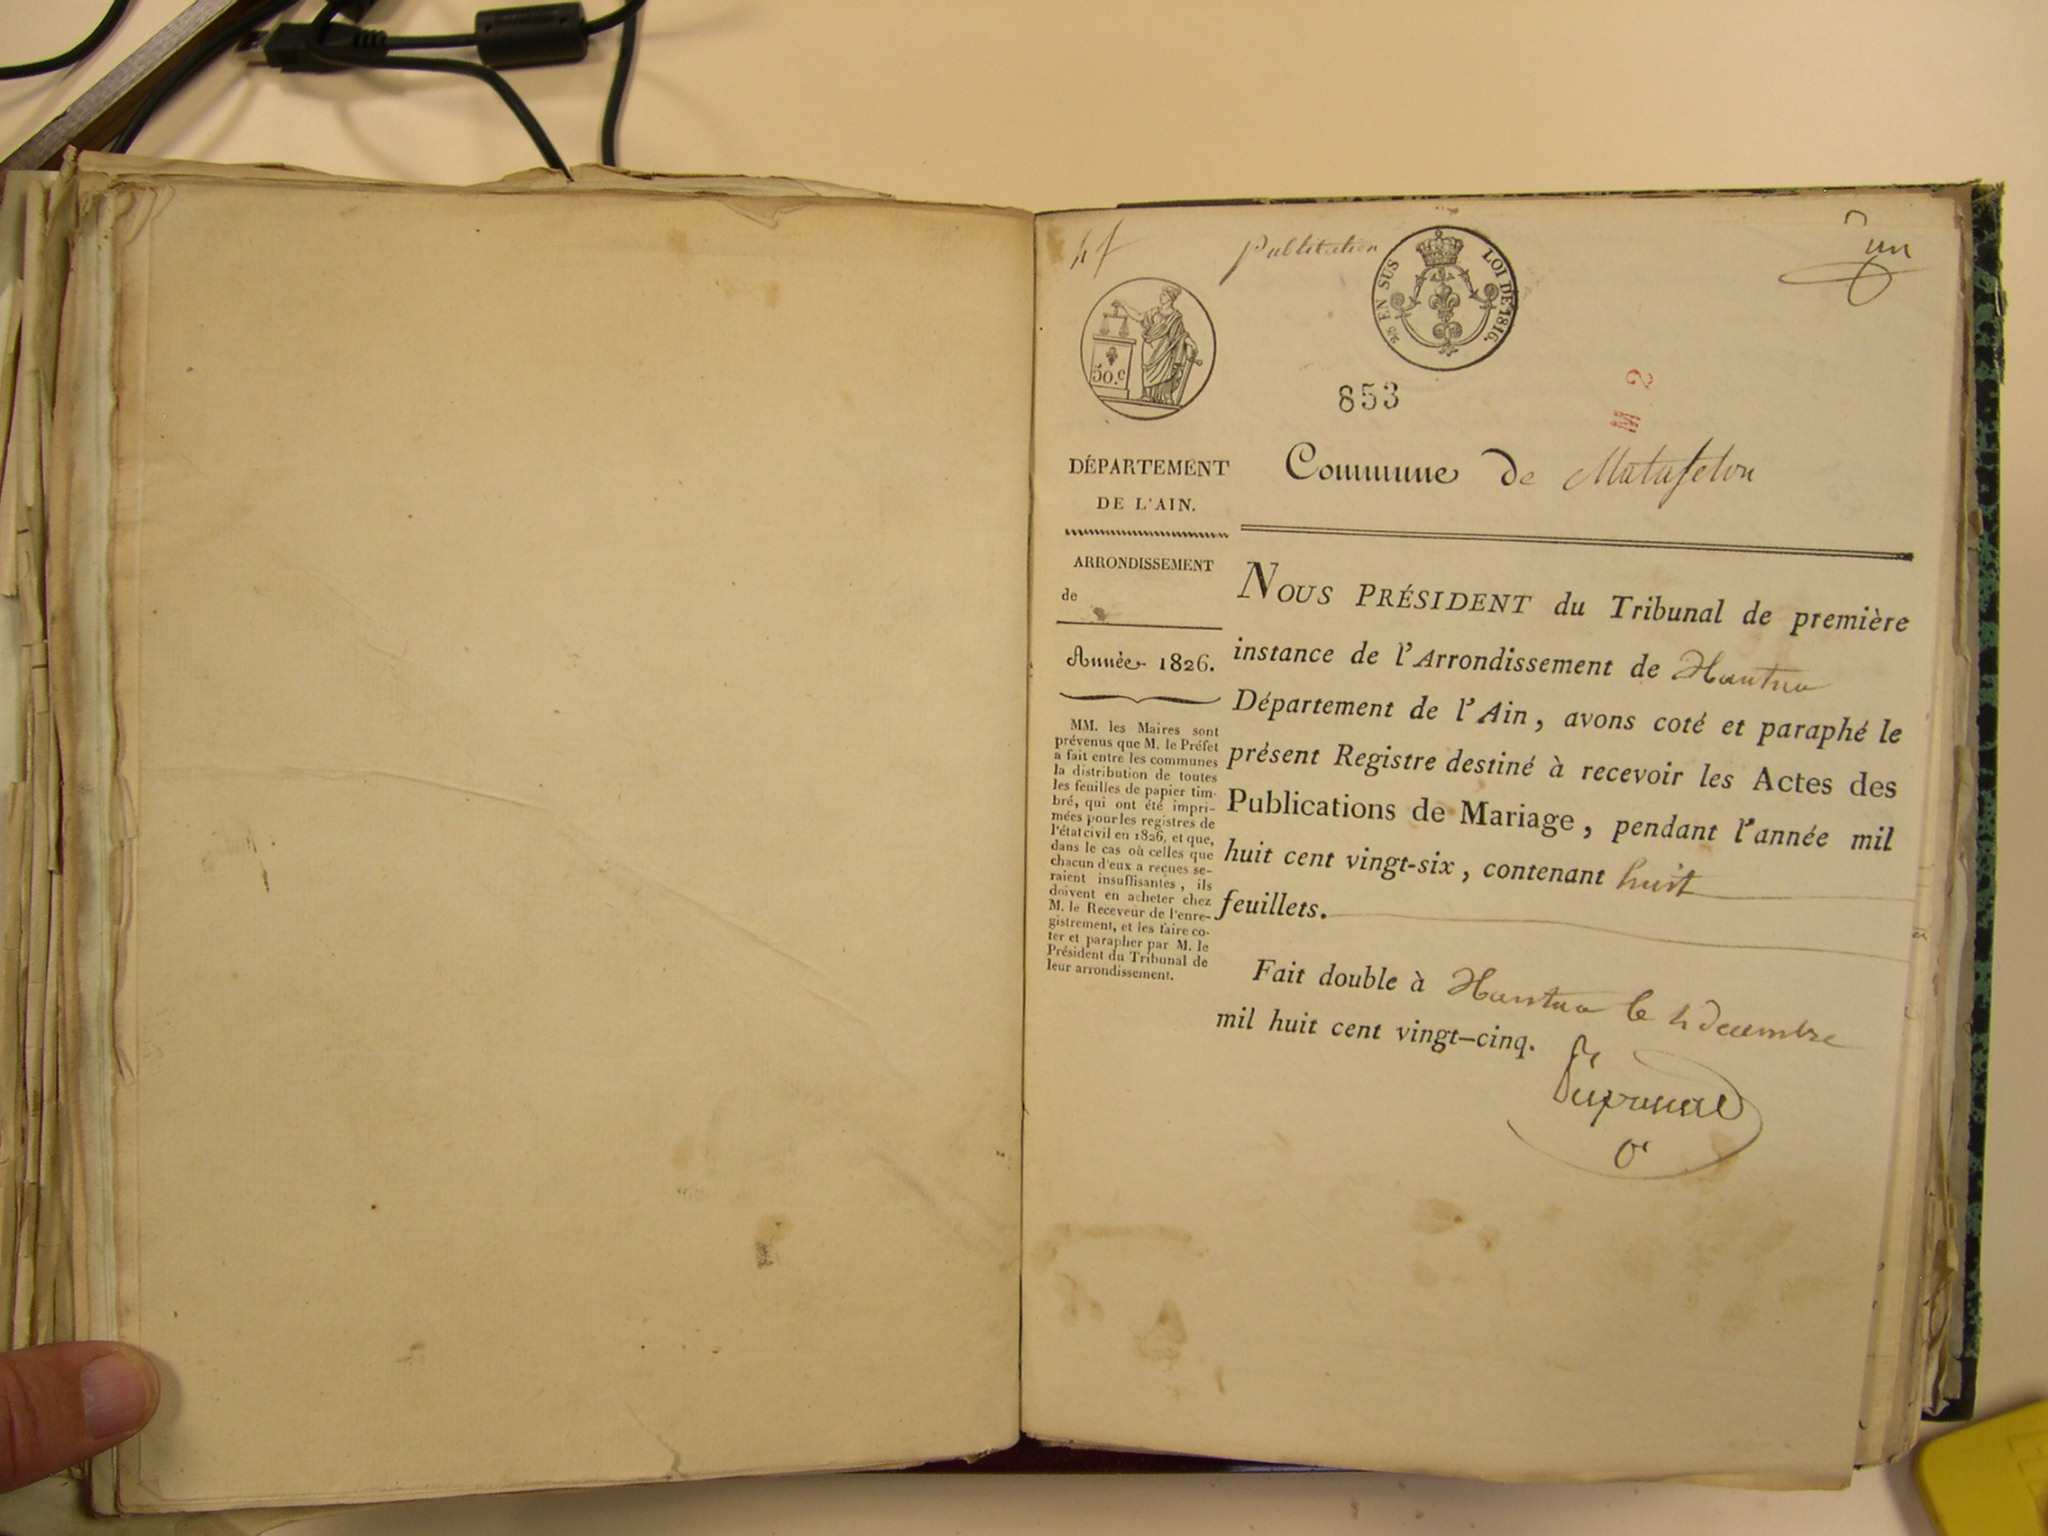 Publication
un
25 EN SUS LOI DE 1816.
50.c
853
M 2
DÉPARTEMENT
DE L'AIN.
Commune de Matafelon
ARRONDISSEMENT
de
Année 1826.
MM. les Maires sont
prévenus que M. le Préfet
a fait entre les communes
la distribution de toutes
les feuilles de papier tim-
bré, qui ont été impri-
mées pour les registres de
l'état civil en 1826, et que,
dans le cas où celles que
chacun d'eux a reçues se-
raient insuffisantes, ils
doivent en acheter chez
M. le Receveur de l'enre-
gistrement, et les faire co-
ter et parapher par M. le
Président du Tribunal de
leur arrondissement.
NOUS PRÉSIDENT du Tribunal de première
instance de l'Arrondissement de Nantua
Département de l'Ain, avons coté et paraphé le
présent Registre destiné à recevoir les Actes des
Publications de Mariage, pendant l'année mil
huit cent vingt-six, contenant huit
feuillets.
Fait double à Nantua le 4 decembre
mil huit cent vingt-cinq.